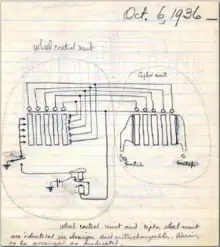 Oct. 6, 1936
wheel control unit
Cipher unit
Switch
wheel control unit and cipher wheel unit
are identical in design and interchangeable. Wiring
to be arranged as indicated.